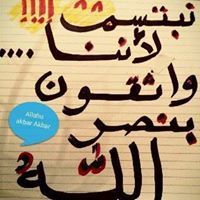 نبتسم !!!!
لأننا
واثقون
بنصر
الله
Allahu
akbar Akbar